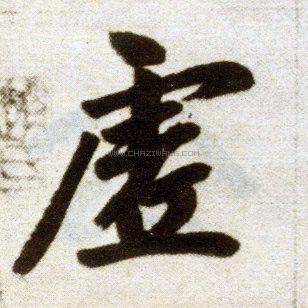 虛
WWW.CHAZIWANG.COM